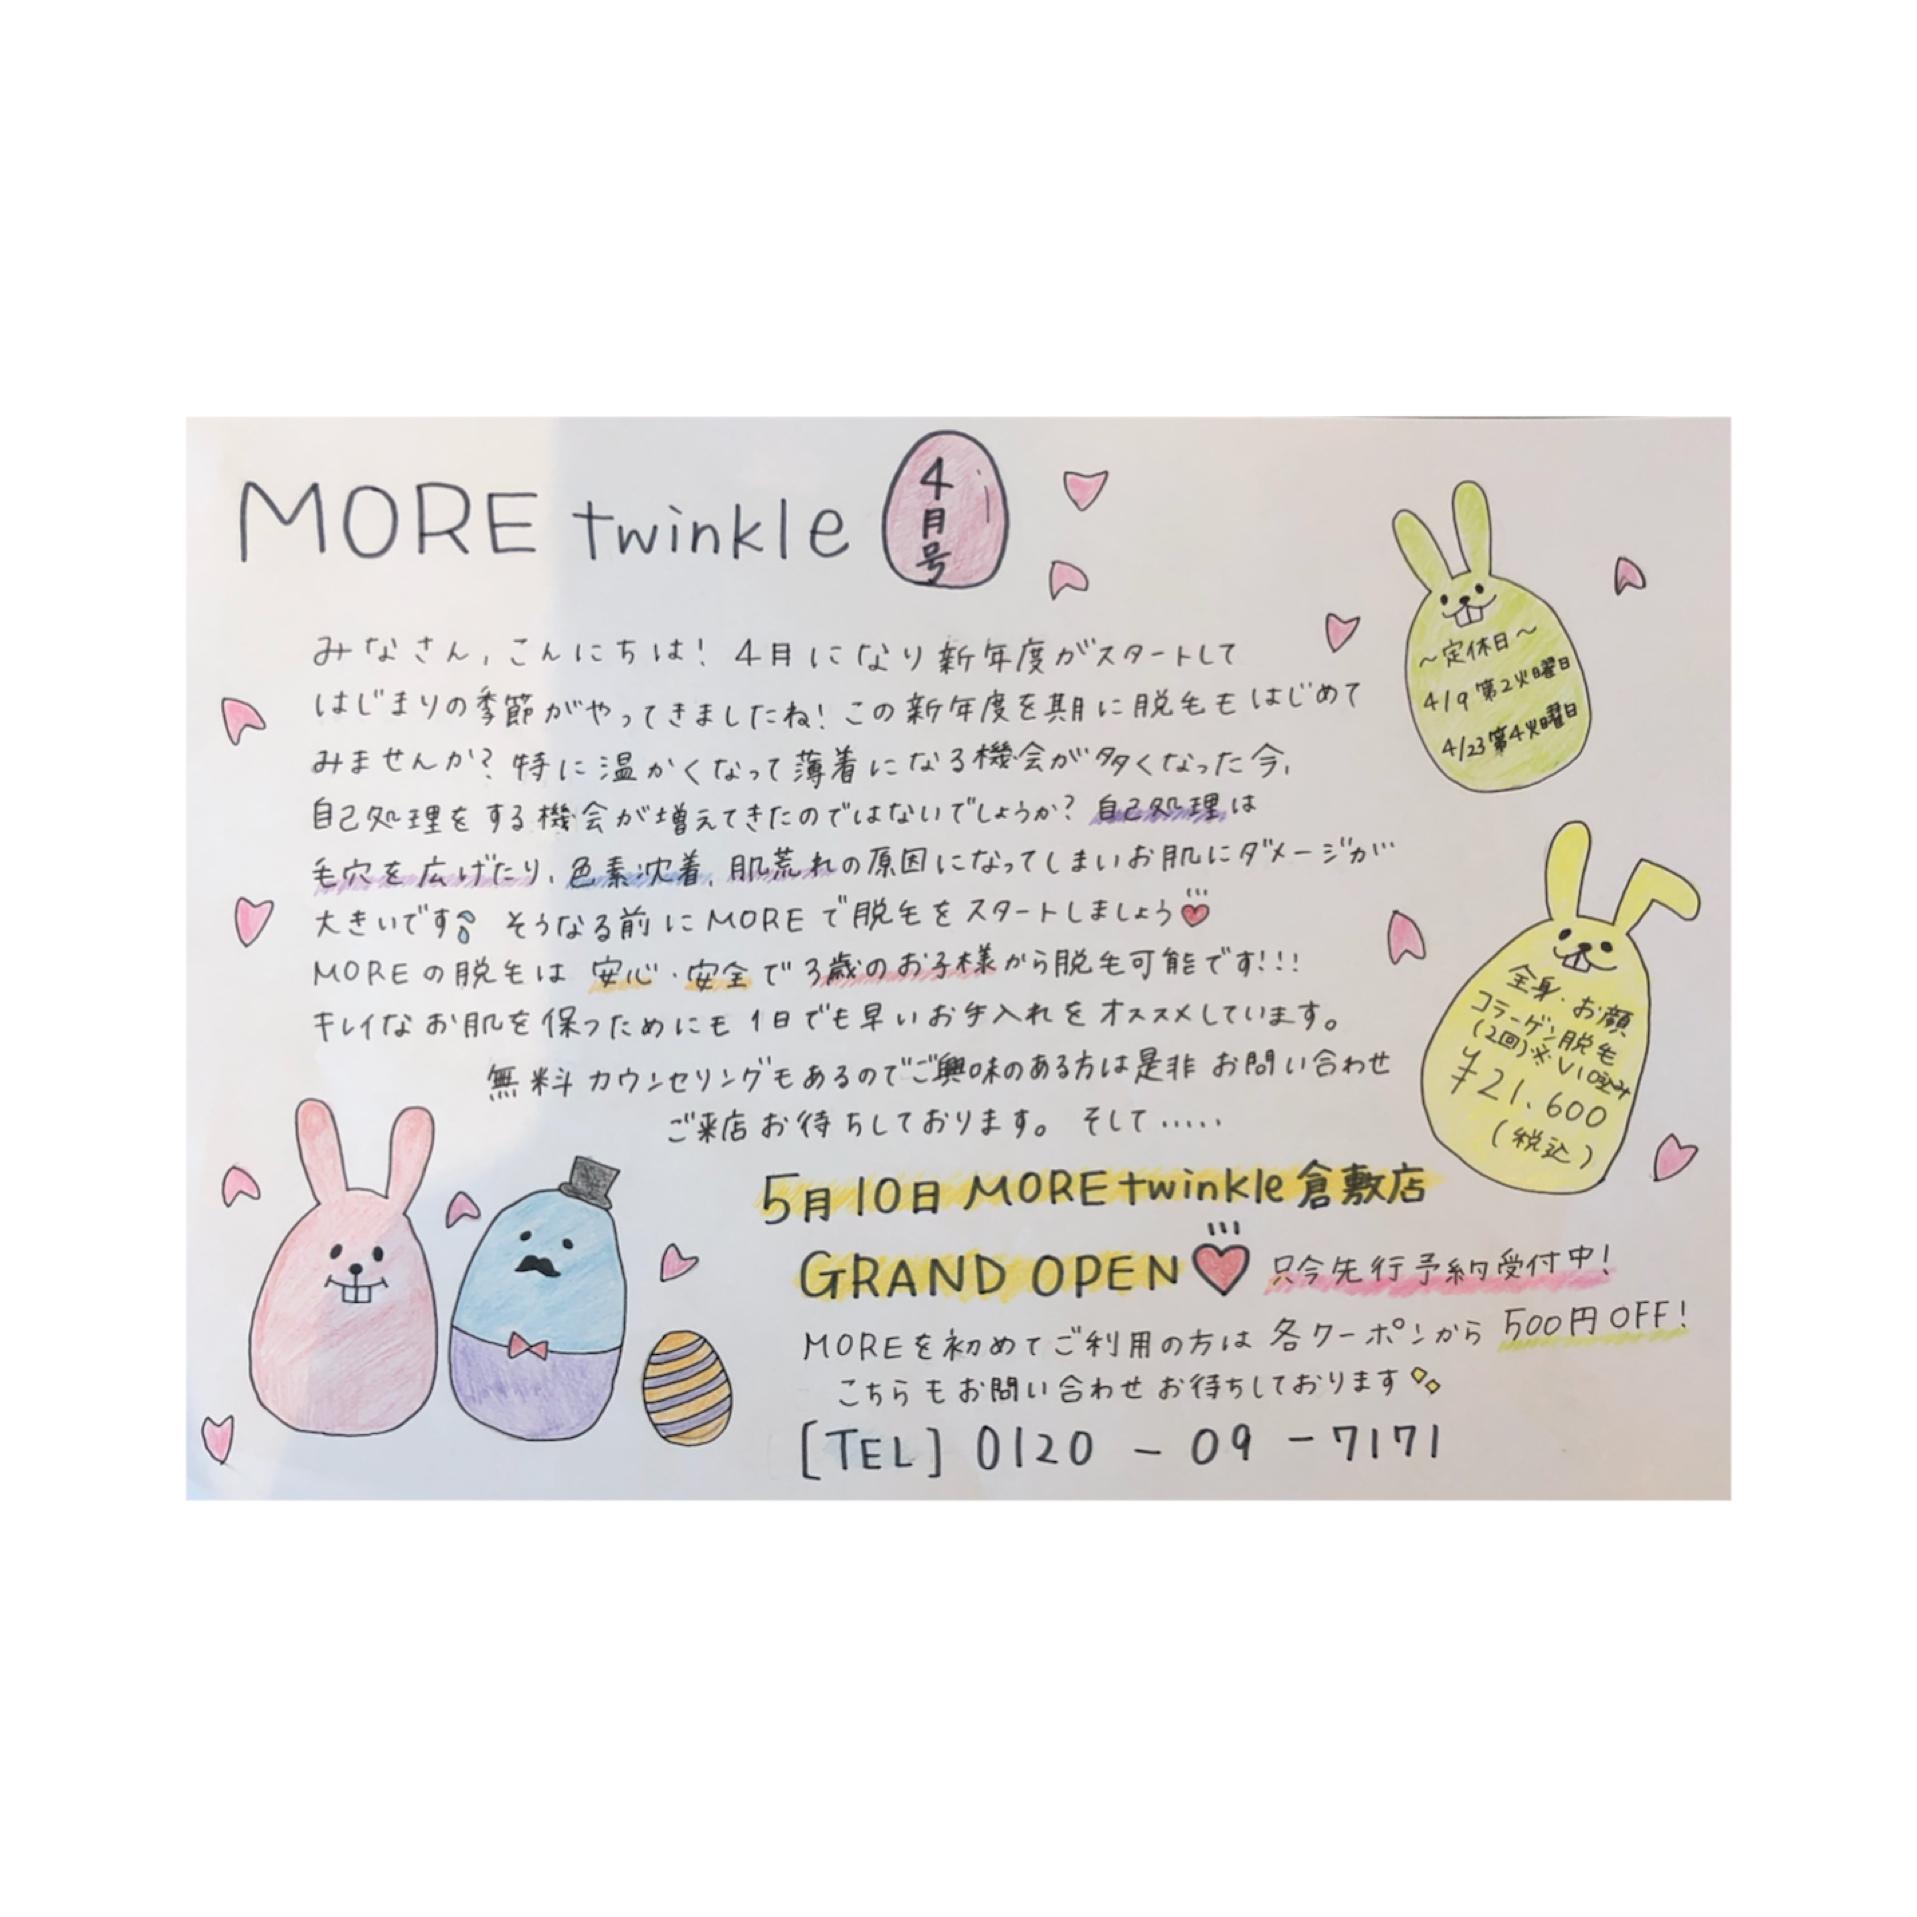 MORE twinkle
4月号
みなさん、こんにちは！4月になり新年度がスタートして
はじまりの季節がやってきましたね！この新年度を期に脱毛もはじめて
みませんか？特に温かくなって薄着になる機会が多くなった今、
自己処理をする機会が増えてきたのではないでしょうか？自己処理は
毛穴を広げたり、色素沈着、肌荒れの原因になってしまいお肌にダメージが
大きいです そうなる前にMOREで脱毛をスタートしましょう
MOREの脱毛は 安心・安全で3歳のお子様から脱毛可能です!!!
キレイなお肌を保つためにも1日でも早いお手入れをオススメしています。
無料カウンセリングもあるのでご興味のある方は是非 お問い合わせ
ご来店お待ちしております。そして.....
5月10日 MORE twinkle 倉敷店
GRAND OPEN 只今先行予約受付中！
MOREを初めてご利用の方は 各クーポンから 500円OFF！
こちらもお問い合わせお待ちしております
[TEL] 0120 - 09 - 7171
～定休日～
4/9 第2火曜日
4/23 第4火曜日
全身・お顔
コラーゲン脱毛
(2回)※VIO込み
¥21.600
(税込)